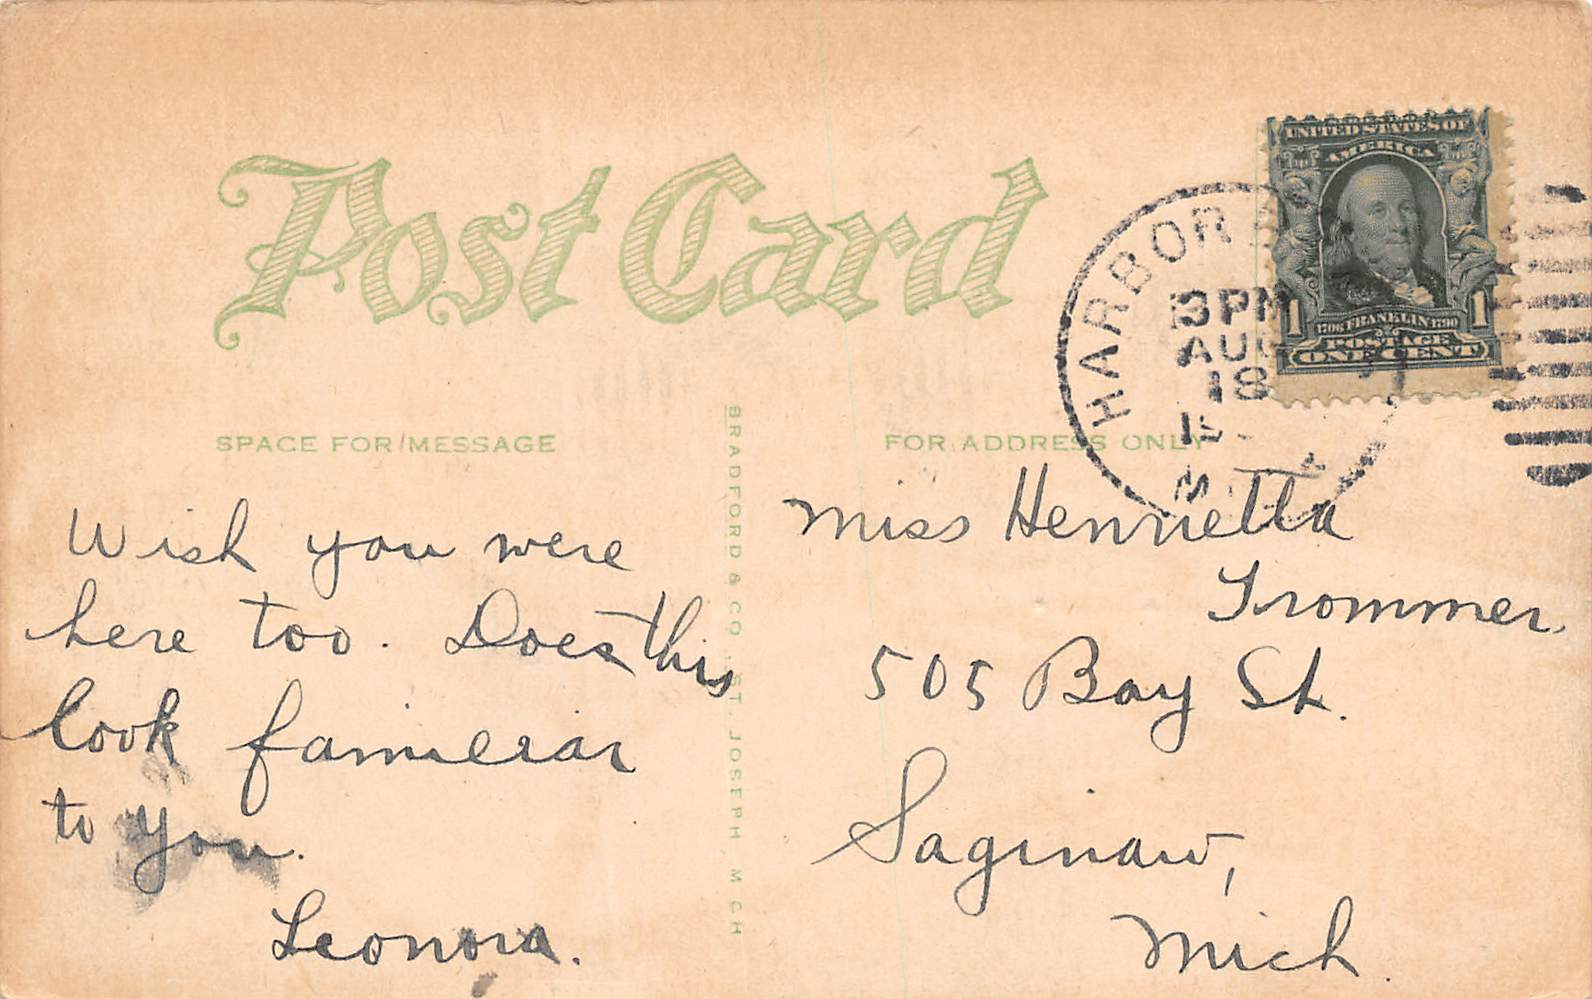 Post Card
UNITED STATES OF
AMERICA
1 1
1706 FRANKLIN 1790
POSTAGE
ONE CENT
HARBOR
3 PM
AUG
18
SPACE FOR MESSAGE
FOR ADDRESS ONLY
BRADFORD & CO., ST. JOSEPH MICH
Wish you were
here too. Does this
look familiar
to you.
Leonora.
Miss Henrietta
Trommer.
505 Bay St.
Saginaw,
Mich.